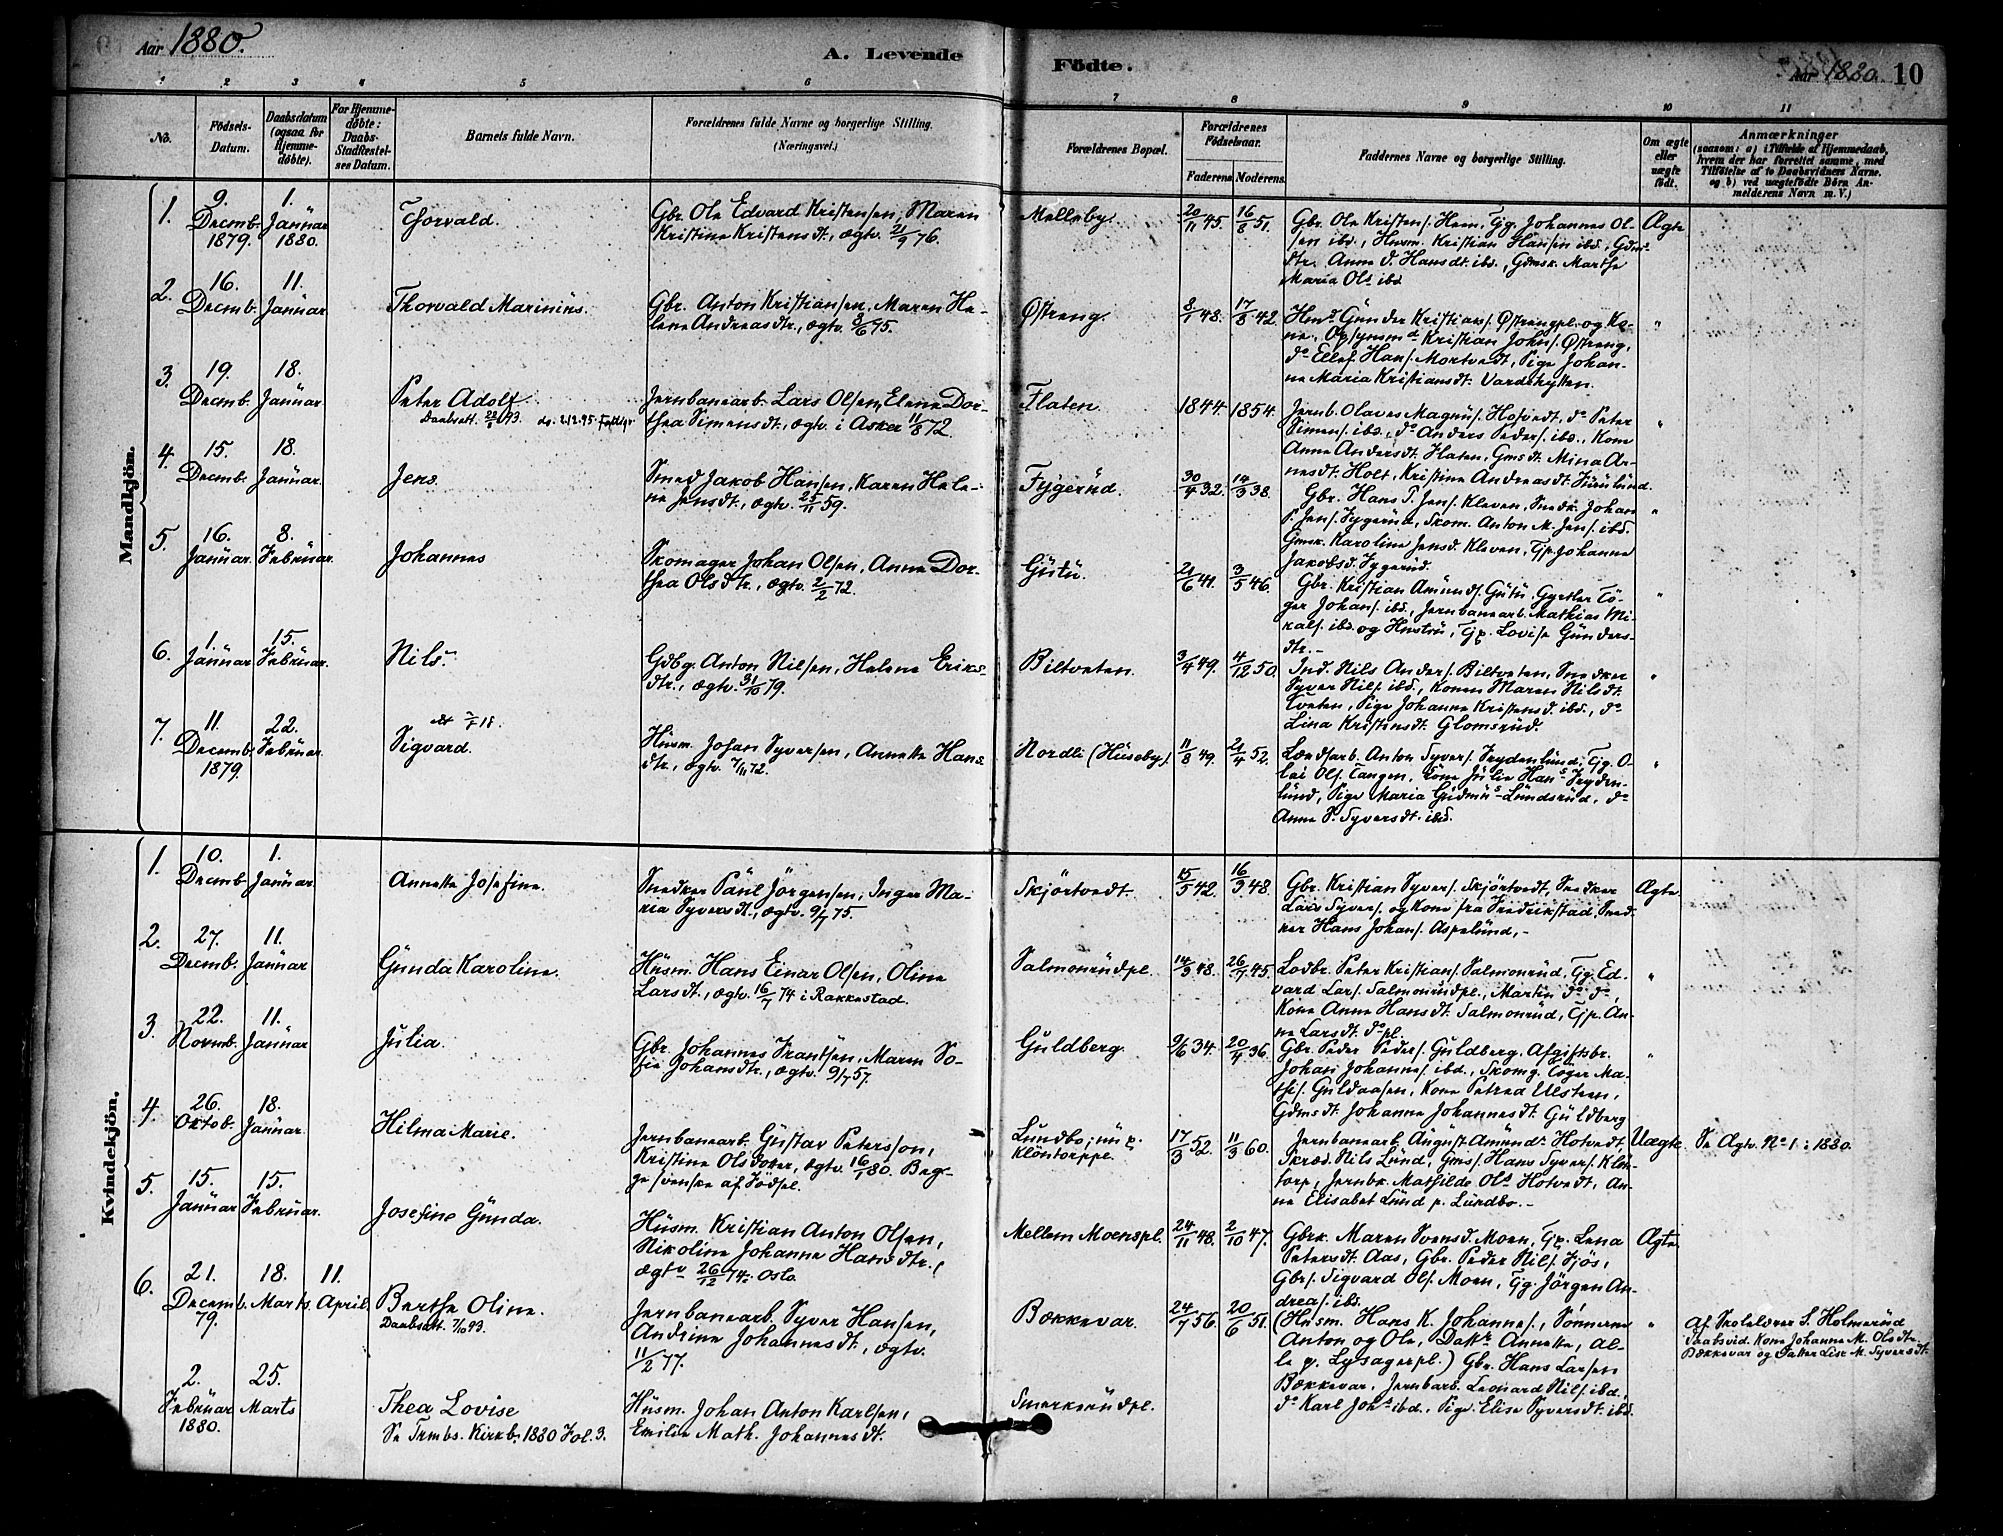 Aar 1880.
A. Levende Födte.
Aar 1880. 10
1 2 3 4 5 6 7 8 9 10 11
No.
Födsels-
Datum.
Daabsdatum
(ogsaa for
Hjemme-
döbte).
For Hjemme-
döbte:
Daabs-
Stadfæstel-
ses Datum.
Barnets fulde Navn.
Forældrenes fulde Navne og borgerlige Stilling.
(Næringsvei.)
Forældrenes Bopæl.
Forældrenes
Födselsaar.
Faderens. Moderens.
Faddernes Navne og borgerlige Stilling.
Om ægte
eller
uægte
födt.
Anmærkninger
(saasom: a) i Tilfælde af Hjemmedaab,
hvem der har forrettet samme, med
Tilföielse af to Daabsvidners Navne.
og b) ved uægtefödte Börn An-
melderens Navn m.V.)
Mandkjön.
1.
9.
Decemb.
1879.
1.
Januar
1880.
Thorvald.
Gbr. Ole Edvard Kristensen, Maren
Kristine Kristensdt., ægtv. 21/9 76.
Melleby.
20/11 45.
16/8 51.
Gbr. Ole Kristens. Heen, Tjg. Johannes Ol-
sen ibd., Husm. Kristian Hansen ibd., Gdm-
dtr. Anne O. Hansdt. ibd., Gdmsk. Marthe
Maria Ols. ibd.
Ægte
2.
16.
Decemb.
11.
Januar
Thorvald Marinius.
Gbr. Anton Kristiansen, Maren He-
lene Andreasdtr., ægtv. 8/6 75.
Østreng.
8/1 48.
17/8 42.
Hmd. Gunder Kristians. Østrengpl. og Ko-
ne, Opsynsmd. Kristian Johns. Østreng,
do Ellef Hans. Mortvedt, Pige Johan-
ne Maria Kristiansdt. Vardehytten.
"
3.
19.
Decemb.
18.
Januar
Peter Adolf
Daabsatt. 22/2 93.
Jernbanearb. Lars Olsen, Elene Dor-
thea Simensdt., ægtv. i Asker 11/8 72.
Flaten
1844.
1854.
Jernb. Olaves Magnus. Hotvedt, do Peter
Simens. ibd., do Anders Peders. ibd., Kone
Anne Andersdt. Flaten, Gmsdt. Mina Ar-
nesdt. Holt, Kristine Andreasdt.
"
4.
15.
Decemb.
18.
Januar.
Jens.
Smed Jakob Hansen, Karen Hele-
ne Jensdt., ægtv. 25/11 59.
Fygerud.
30/4 32.
14/3 38.
Gbr. Hans P. Jens. Kleven, Snedk. Johan
P. Jens. Fygerud, Skom. Anton M. Jens. ibd.
Gmsk. Karoline Jensd. Kleven, Tjp. Johanne
Jakobsd. Fygerud.
"
5.
16.
Januar.
8.
Februar.
Johannes
Skomager Johan Olsen, Anne Dor-
thea Olsdtr., ægtv. 2/2 72.
Gutu.
21/6 41.
3/5 46.
Gbr. Kristian Amunds. Gutu, Gjørtler Tø-
ger Johans. ibd., Jernbanearb. Mathias Mi-
kals. ibd. og Hustru, Tjp. Lovise Gunders-
dtr.
"
6.
1.
Januar
15.
Februar.
Nils.
Gdbg. Anton Nilsen, Helene Eriks-
dtr., ægtv. 31/10 79.
Biltveten.
3/4 49.
4/12 50.
Ind. Nils Anders. Biltveten, Snedker
Syver Nils. ibd., Konen Maren Nilsdt.
Tveten, Pige Johanne Kristensd. ibd., do
Lina Kristensdt. Glomsrud.
"
7.
11.
Decemb.
1879.
22.
Februar.
Sigvard.
Husm. Johan Syversen, Annette Hans-
dtr., ægtv. 7/11 72.
Nordli (Huseby).
11/8 49.
21/4 52.
Landarb. Anton Syvers. Frydenlund, Tjg. O-
lai Ols. Tangen, Kone Julie Hans. Fryden-
lund, Pige Maria Gudmus. Lundsrud, do
Anne P. Syversdt. ibd.
"
Kvindekjön.
1.
10.
Decemb
1.
Januar.
Annette Josefine.
Snedker Paul Jörgensen, Inger Ma-
ria Syversdt., ægtv. 9/7 75.
Skjörtvedt.
15/5 42.
16/9 48.
Gbr. Kristian Syvers. Skjörtvedt, Snedker
Lars Syvers. og Kone fra Fredrikstad, Sned-
ker Hans Johans. Aspelund,-
Ægte
2.
27.
Decemb.
11.
Januar
Gunda Karoline.
Husm. Hans Einar Olsen, Oline
Larsdt., ægtv. 16/7 74 i Rakkestad.
Salmonrudpl.
14/3 48.
26/7 45.
Lodbr. Peter Kristians. Salmonrud, Tjg. Ed-
vard Lars. Salmonrudpl., Martin do do,
Kone Anne Hansdt. Salmonrud, Tjp. An-
ne Larsdt. do pl.
"
3.
22.
Novmb.
11.
Januar
Julia.
Gbr. Johannes Frantsen, Maren So-
fie Johansdtr., ægtv. 9/7 57.
Guldberg
9/6 34.
20/4 36.
Gbr. Peder Peders. Guldberg, Afgiftsbr.
Johan Johannes. ibd., Skomg. Töger Ma-
this. Guldaasen, Kone Petrea Ulsteen,
Gdmsdt. Johanne Johannesdt. Guldberg
"
4.
26.
Oktob.
18.
Januar.
Hilma Marie.
Jernbanearb. Gustav Petersson,
Kristine Olsdotter, ægtv. 16/1 80. Beg-
ge svenske af Fødsel.
Lundbo, un p.
Kløntorppe.
17/3 52.
11/3 60.
Jernbanearb. August Amunds. Hotvedt
Skræd. Nils Lund, Gms. Hans Syvers. Kløn-
torp, Jernbk. Mathilde Ols. Hotvedt, An-
ne Elisabet Lund p. Lundbo.-
Uægte
Se Ægtv. No 1 i 1880.
5.
15.
Januar
15.
Februar.
Josefine Gunda.
Husm. Kristian Anton Olsen,
Nikoline Johanne Hansdtr.,
ægtv 26/12 74 i Oslo
Mellem Moenspl.
24/11 48.
2/10 47.
Gbrk. Maren Svensd. Moen, Tjp. Lena
Petersdt. Aas, Gbr. Peder Nils. Fjös,
Gbrs. Sigvard Ols. Moen, Tjg. Jörgen An-
dreas. ibd.
Ægte
6.
21.
Decemb.
79.
18.
Marts
11.
April.
Berthe Oline.
Daabsatt. 7/10 93.
Jernbanearb. Syver Hansen,
Andrine Johannesdt., ægtv.
11/2 77.
Bækkevar.
24/7 56.
20/6 51.
(Husm. Hans K. Johannes., Sønnerne
Anton og Ole, Dattr. Annette, al-
le p. Lysagerpl.) Gbr. Hans Larsen
Bækkevar, Jernbarb. Leonard Nils. ibd.,
do Karl Johs. ibd., Pige Elise Syversdt. ibd.
"
Af Skolelærer S. Holmerud
Daabsvid. Kone Johanne M. Olsdtr.
Bækkevar og Datter Lise M. Syversdt.
2.
Februar
1880.
25.
Marts
Thea Lovise
Se Trmbs. Kirkb. 1880 Fol. 3.
Husm. Johan Anton Karlsen,
Emilie Math. Johannesdt.
Smerkerudpl.